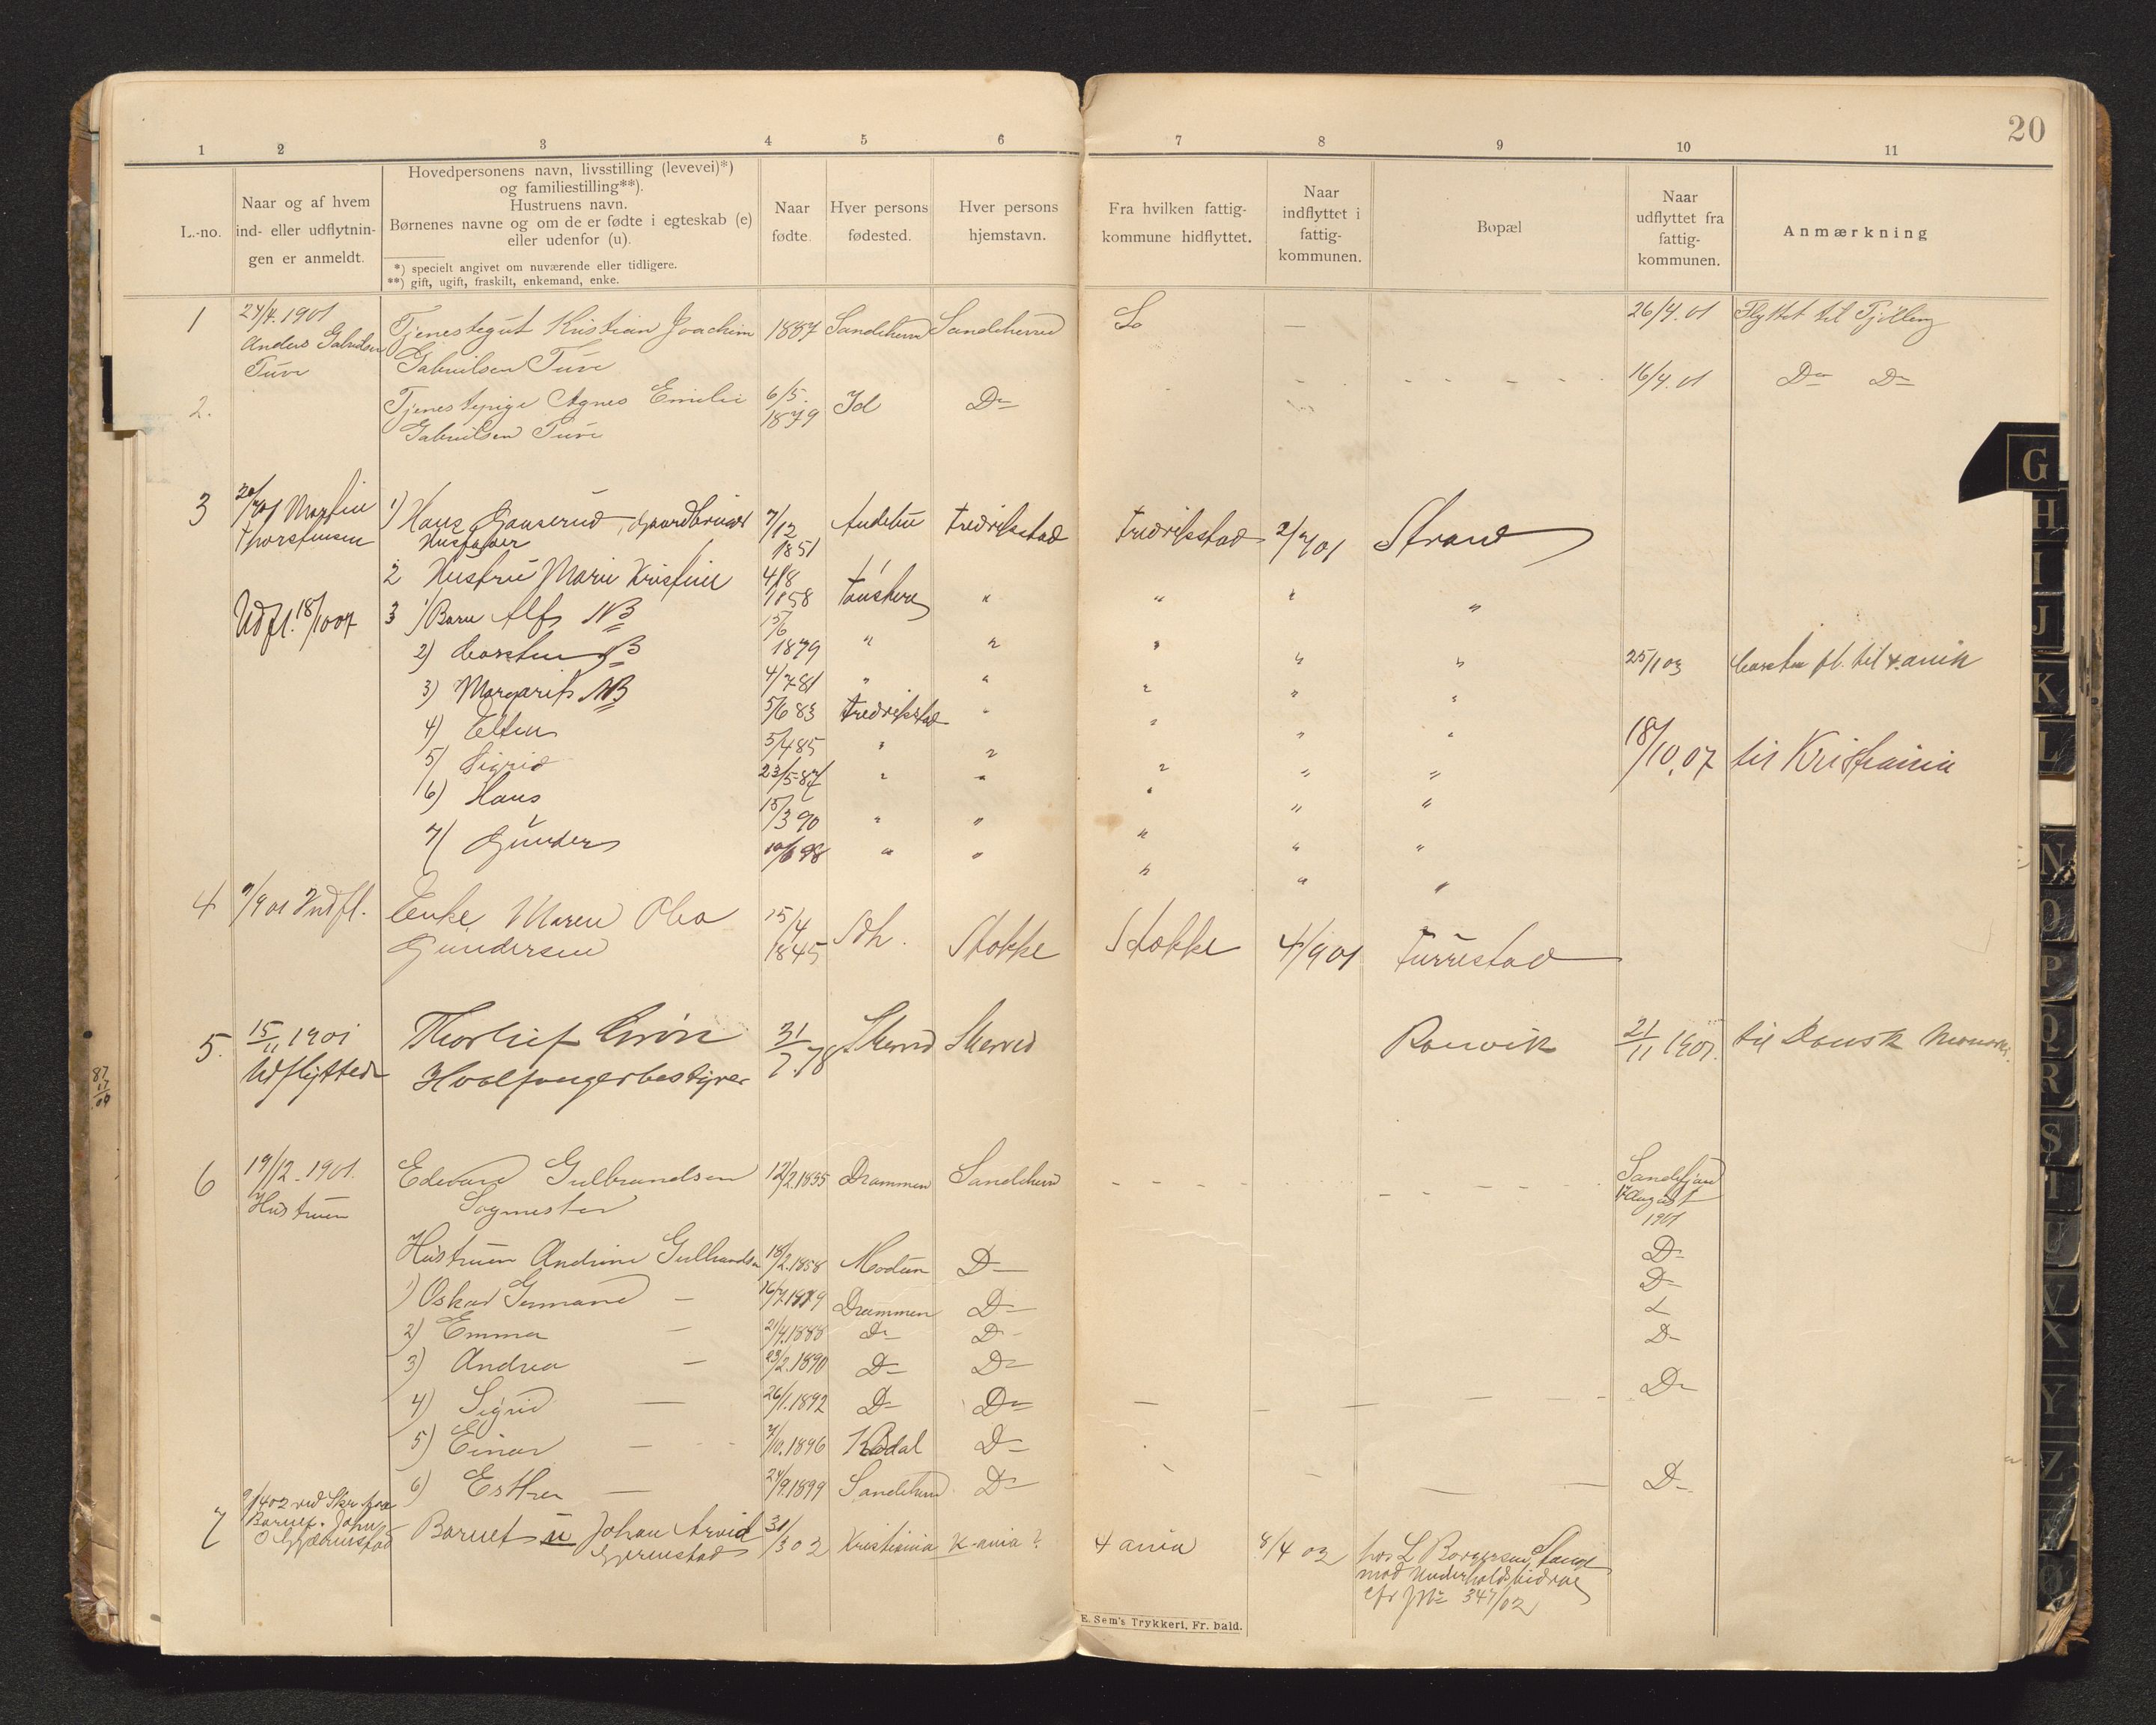 20
1 2 3 4 5 6 7 8 9 10 11
L.-no.
Naar og af hvem
ind- eller udflytnin-
gen er anmeldt.
Hovedpersonens navn, livsstilling (levevei)*)
og familiestilling**).
Hustruens navn.
Børnenes navne og om de er fødte i egteskab (e)
eller udenfor (u).
*) specielt angivet om nuværende eller tidligere.
**) gift, ugift, fraskilt, enkemand, enke.
Naar
fødte.
Hver persons
fødested.
Hver persons
hjemstavn.
Fra hvilken fattig-
kommune hidflyttet.
Naar
indflyttet i
fattig-
kommunen.
Bopæl
Naar
udflyttet fra
fattig-
kommunen.
Anmærkning
1 27/4. 1901 Tjenestegut Kristian Joachim 1887 Sandeherred Sandeherred — 26/4. 01 Flyttet til Tjølling
Anders Gabrielsen Gabrielsen Tuve
Tuve
2. Tjenestepige Agnes Emilie 6/5. Id Do 16/4. 01 Do Do
Gabrielsen Tuve 1879
3 Martin 1) Hans Gauserud, Gaardbruger 7/12 Andebu Fredrikstad Fredriksstad 2/4 01 Strand
Thorstensen Husfader 1851
2 Hustru Marie Kristine 4/8 1858 Tønsberg " " " "
Udfl. 18/10 07 3 1) Barn Alf NB 15/6 1879 " " " " "
2) Carsten NB 4/7 81 " " " " " 25/1 03 Carsten fl. til
3) Margarit NB 5/6 83 Fredrikstad " " " "
4) Ellen 5/4 85 " " " " "
5) Sigrid 23/5 87 " " " " " 18/10.07 til Kristiania
6) Hans 15/3 90 " " " " "
7) Gunder 10/6 98 " " " " "
4 7/9 01 Indfl. Enke Maren Olea 15/4 Sdh. Stokke Stokke 4/9 01 Furrestad
Gundersen 1845
5. 15/11 1901 Thorleif Grøn 31/7.78 Skerved Skerved Ranvik 21/11 1901. til Dansk
Udflyttede Hvalfangerbestyrer
6 19/12. 1901. Edevard Gulbrandsen 12/2.1855 Drammen Sandeherred Sandefjord
Hustruen Sagmester August
1901
Hustruen Andrine Gulbrandsen 18/2.1858 Modum Do Do
1) Oskar Germand — 16/7.1879 Drammen Do Do
2) Emma — 21/4.1888 Do Do
3) Andrea — 23/2.1890 Do Do Do
4) Sigrid — 26/1.1892 Do Do Do
5) Einar — 7/10.1896 Kodal Do
6) Esther — 24/9.1899 Sandeherred Do Do
7 9/4 02 ved Skr. fra Barnet u Johan Arvid 31/3 02 Kristiania K-ania? 8/4 02 hos L Borgersen, Stange
Barnet. John Gjernstad mod Underholdsbidrag
cfr J No 347/02
E. Sem's Trykkeri, Fr. hald.
G
H
I
J
K
L
N
O
P
Q
R
S
T
U
V
X
Y
Z
Ø